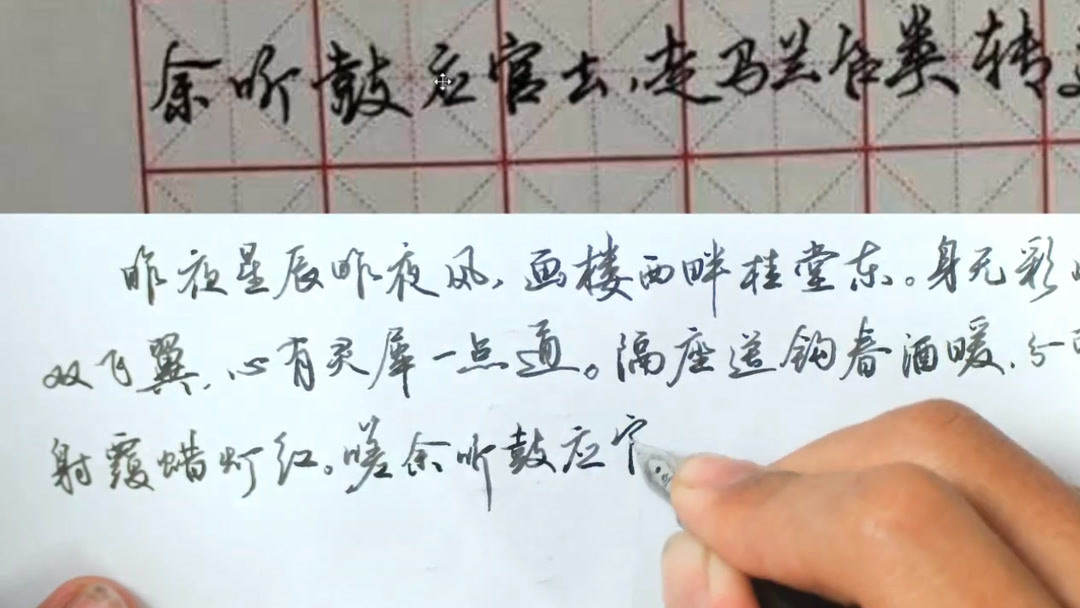 余听鼓应官去，走马兰台类转
昨夜星辰昨夜风，画楼西畔桂堂东。身无彩
双飞翼，心有灵犀一点通。隔座送钩春酒暖，分
射覆蜡灯红。嗟余听鼓应官